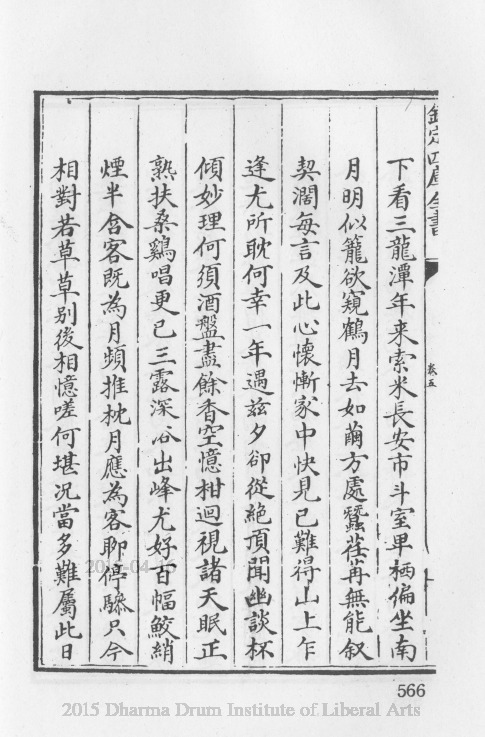 欽定四庫全書
卷五
下看三龍潭年来索米長安市斗室卑栖偏坐南
月明似籠欲窺鶴月去如繭方處蠶荏苒無能叙
契濶每言及此心懷慚家中快見已難得山上乍
逢尤所耽何幸一年遇兹夕卻從絶頂聞幽談杯
傾妙理何須酒盤盡餘香空憶柑迴視諸天眠正
熟扶桑鷄唱更已三露深谷出峰尤好百幅鮫綃
煙半含客既為月頻推枕月應為客聊停驂只今
相對若草草别後相憶嗟何堪况當多難屬此日
566
2015 Dharma Drum Institute of Liberal Arts